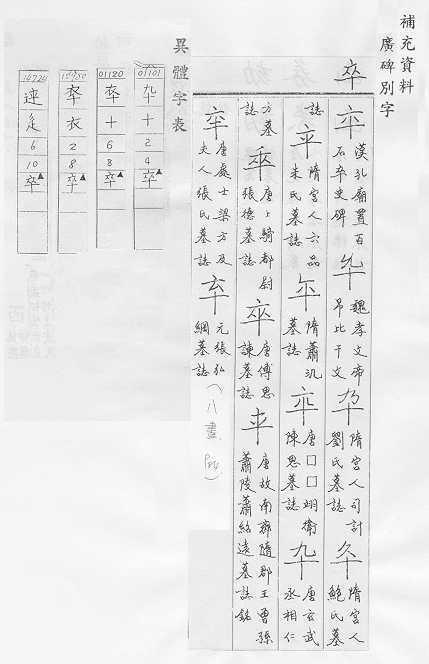 補充資料
廣碑別字
卒
漢孔廟置百
石卒史碑
魏孝文帝
弔比干文
隋宮人司計
劉氏墓誌
隋宮人
鮑氏墓
誌
隋宮人六品
朱氏墓誌
隋蕭氿
墓誌
唐□□翊衛
陳思墓誌
唐玄武
丞相仁
方墓
誌
唐上騎都尉
張德墓誌
唐傅思
諫墓誌
唐故南鄉隋郡王曹孫
蕭陵蕭紹遠墓誌銘
唐處士梁方及
夫人張氏墓誌
元張弘
綱墓誌
(八畫
異體字表
01101
卆
十
2
4
卒▲
01120
十
6
8
卒▲
衣
2
8
卒▲
辵
6
10
卒▲